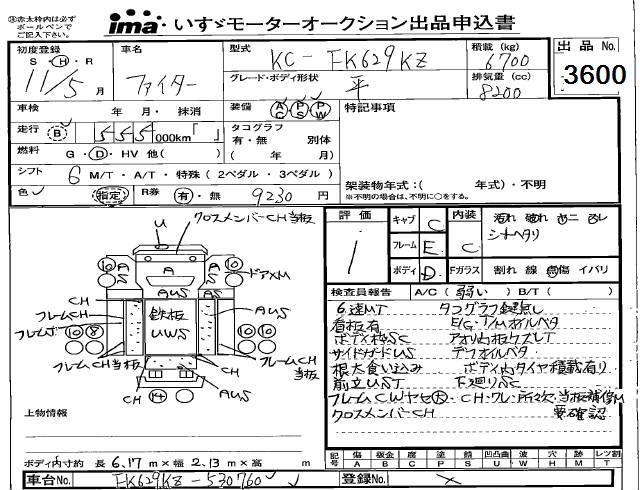 ※赤太枠内は必ず
ボールペンで
ご記入下さい。
ima・いすゞモーターオークション出品申込書
初度登録 車名 型式 KC-FK629KZ 積載 (kg) 6700 出品 No.
S・H・R 11/5 月 ファイター グレード・ボディ形状 平 排気量 (cc) 8200 3600
車検 年・月・抹消 装備 AC PS PW 特記事項
走行 B 555 000km「 」 タコグラフ 有・無 別体
燃料 G・D・HV 他( ) ( 年 月)
シフト 6 M/T・A/T・特殊 (2ペダル・3ペダル) 架装物年式:( 年式)・不明
色 指定 R券 有・無 9230 円 ※不明の場合は、不明に○をする。
クロスメンバーCH当板
U
評価 1 キャブ C 内装 C 汚れ 破れ
シートヘタリ
フレーム E
ボディ D Fガラス 割れ 線 点傷 イバリ
10 A A A 10 ドアXM
AUS
検査員報告 A/C (弱い) B/T ( )
CH CH AUS
フレームCH 鉄板 フレームCH
UWS
10 8 10 10
フレームCH当板 フレームCH
当板
CH 14 AUS
6速MT タコグラフ鍵無し
看板有 E/G・T/Mオイルベタ
ボディ枠SC アオリ内板ケズレT
サイドガードUS デフオイルベタ
根太食い込み ボディ内タイヤ積載有り
前立UST 下廻りSC
フレームCWヤセ大・CH・ワレ・所々穴・当板補修M
クロスメンバーCH 要確認
上物情報
ボディ内寸約 長 6.17 m×幅 2.13 m×高 m
記号 傷 A 板金 B 腐 C 塗 P 錆 S 凹凸曲 U 波 W 穴 H 跡 M レンズ割 T
車台No. FK629KZ-530760 登録No.